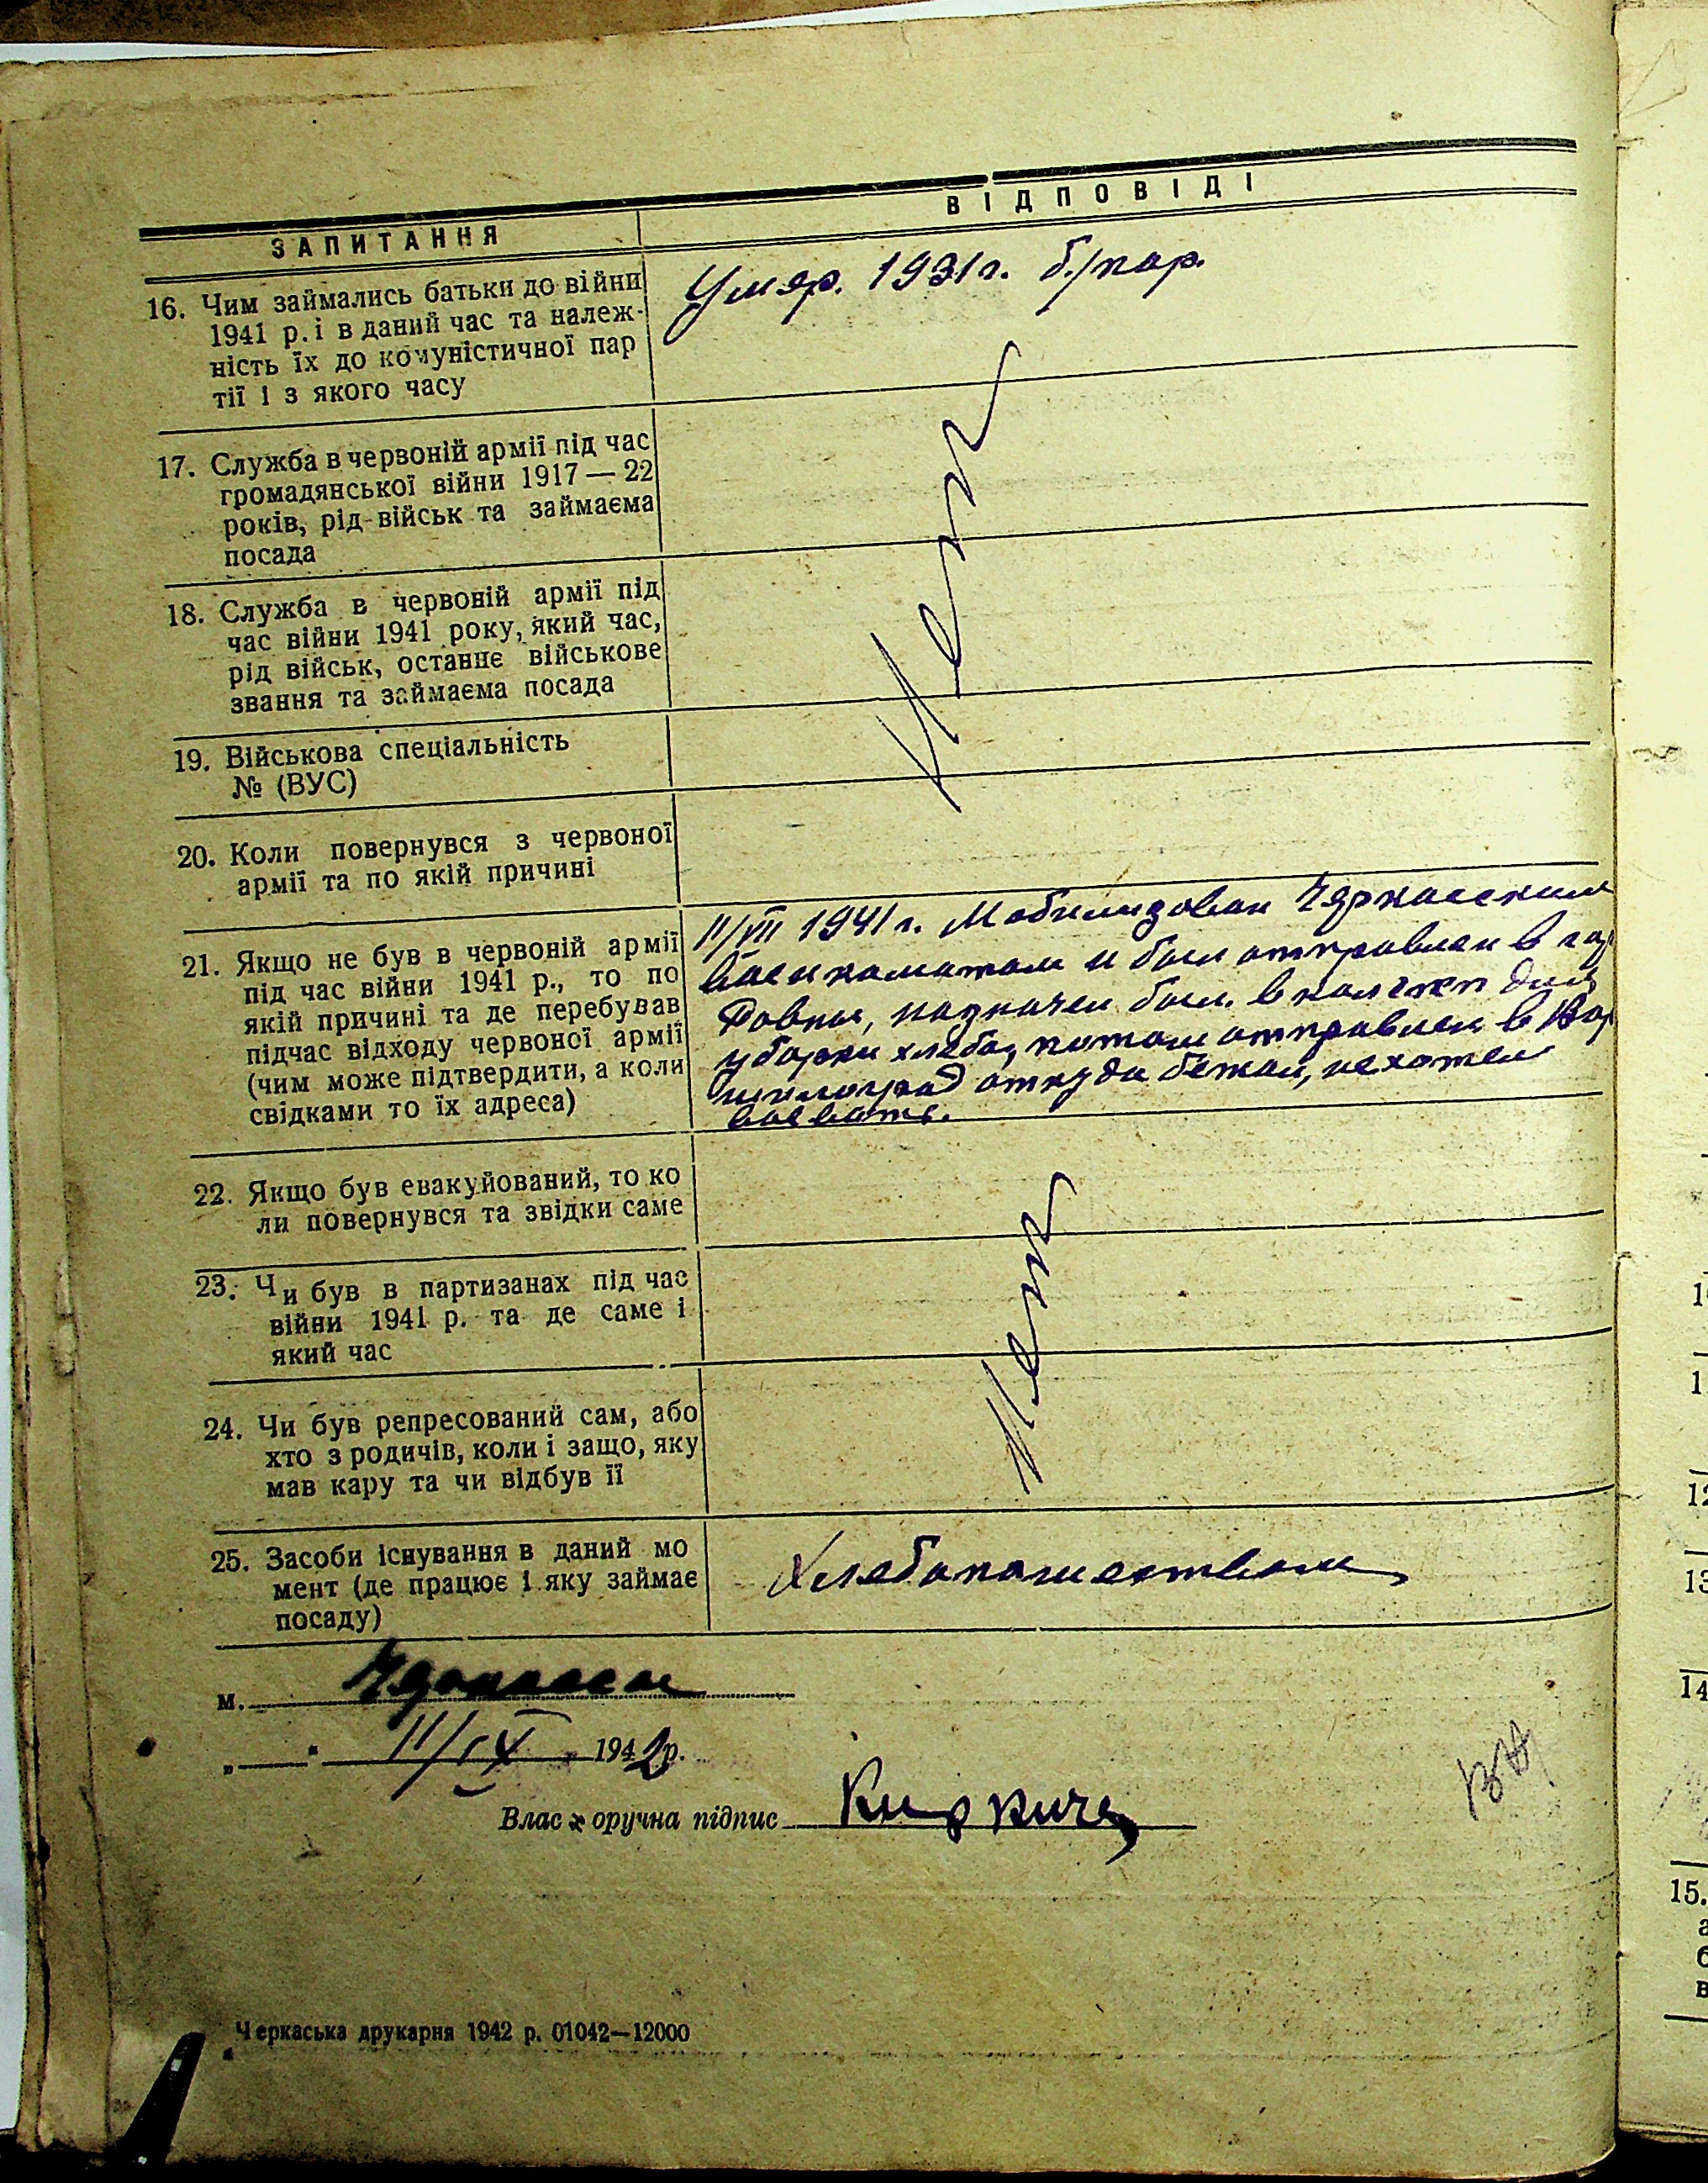 ЗАПИТАННЯ
ВІДПОВІДІ
16. Чим займались батьки до війни
1941 р. і в даний час та належ-
ність їх до комуністичної пар
тії і з якого часу
Умер. 1931 г. б/пар.
17. Служба в червоній армії під час
громадянської війни 1917—22
років, рід військ та займаєма
посада
Нет
18. Служба в червоній армії під
час війни 1941 року, який час,
рід військ, останнє військове
звання та займаєма посада
19. Військова спеціальність
№ (ВУС)
20. Коли повернувся з червоної
армії та по якій причині
21. Якщо не був в червоній армії
під час війни 1941 р., то по
якій причині та де перебував
підчас відходу червоної армії
(чим може підтвердити, а коли
свідками то їх адреса)
11/VII 1941 г. Мобилизован Черкасским
военкоматом и был отправлен в
назначен был в для
уборки хлеба, потом отправлен в Вор
шилоград откуда бежал, не хотел
воевать.
22. Якщо був евакуйований, то ко
ли повернувся та звідки саме
23. Чи був в партизанах під час
війни 1941 р. та де саме і
який час
Нет
24. Чи був репресований сам, або
хто з родичів, коли і защо, яку
мав кару та чи відбув її
25. Засоби існування в даний мо
мент (де працює і яку займає
посаду)
Хлебопашеством
м. Черкассы
„ “ 11/IX 1942 р.
Власоручна підпис
Черкаська друкарня 1942 р. 01042—12000
12
13
14
15.